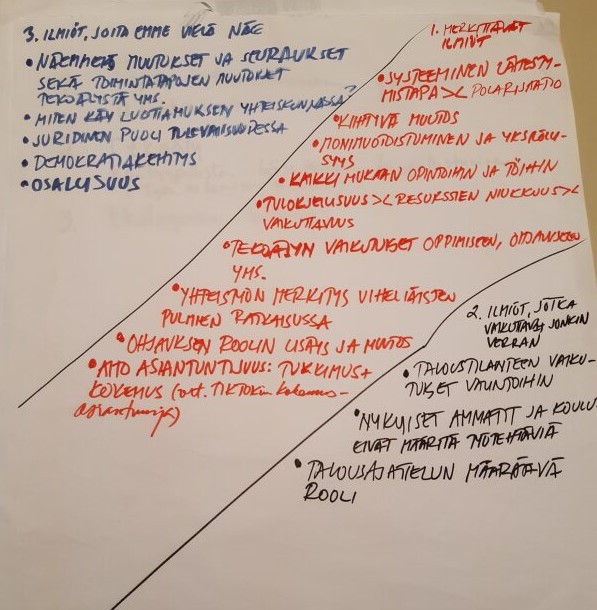 3. ILMIÖT, JOITA EMME VIELÄ NÄE
• NÄEMMEKÖ MUUTOKSET JA SEURAUKSET
SEKÄ TOIMINTATAPOJEN MUUTOKSET
TEKOÄLYSTÄ YMS.
• MITEN KÄY LUOTTAMUKSEN YHTEISKUNNASSA?
• JURIDINEN PUOLI TULEVAISUUDESSA
• DEMOKRATIAKEHITYS
• OSALLISUUS
1. MERKITTÄVÄT
ILMIÖT
• SYSTEEMINEN LÄHESTY-
MISTAPA >< POLARISAATIO
• KIIHTYVÄ MUUTOS
• MONIMUOTOISTUMINEN JA YKSILÖLLI-
SYYS
• KAIKKI MUKAAN OPINTOIHIN JA TÖIHIN
• TULOKSELLISUUS >< RESURSSIEN NIUKKUUS ><
VAIKUTTAVUUS
• TEKOÄLYN VAIKUTUKSET OPPIMISEEN, OHJAUKSEEN
YMS.
• YHTEISTYÖN MERKITYS VIHELIÄISTEN
PULMIEN RATKAISUSSA
• OHJAUKSEN ROOLIN LISÄYS JA MUUTOS
• AITO ASIANTUNTIJUUS: TUTKIMUS +
KOKEMUS (vrt. TIKTOKin kokemus-
asiantuntija)
2. ILMIÖT, JOTKA
VAIKUTTAVAT JONKIN
VERRAN
• TALOUSTILANTEEN VAIKU-
TUKSET VALINTOIHIN
• NYKYISET AMMATIT JA KOULU-
EIVÄT MÄÄRITÄ TYÖTEHTÄVIÄ
• TALOUSAJATTELUN MÄÄRÄÄVÄ
ROOLI